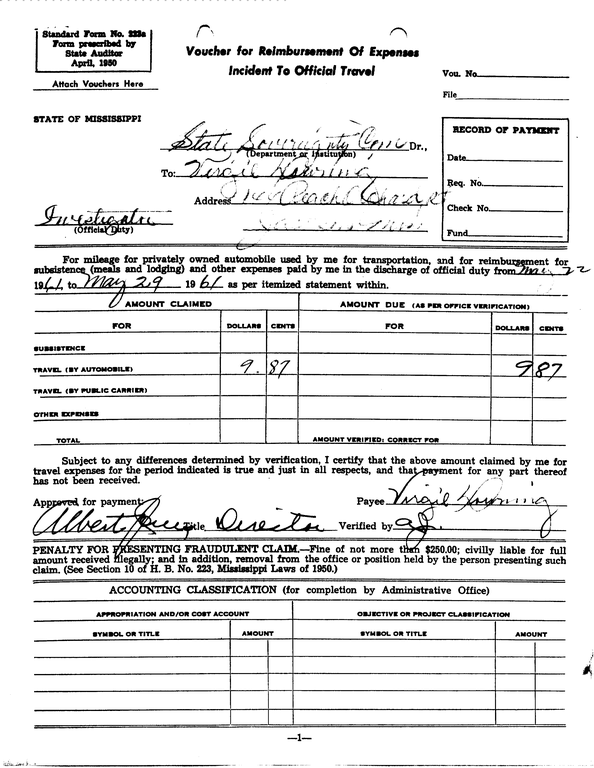 Standard Form No. 223a
Form prescribed by
State Auditor
April, 1950
Attach Vouchers Here
Voucher for Reimbursement Of Expenses
Incident To Official Travel
Vou. No.
File
STATE OF MISSISSIPPI
State Sovereignty Com Dr.,
(Department or Institution)
To: Virgil Downing
Address
Investigator
(Official Duty)
RECORD OF PAYMENT
Date
Req. No.
Check No.
Fund
For mileage for privately owned automobile used by me for transportation, and for reimbursement for
subsistence (meals and lodging) and other expenses paid by me in the discharge of official duty from May 22
1961 to May 29 1961 as per itemized statement within.
AMOUNT CLAIMED AMOUNT DUE (AS PER OFFICE VERIFICATION)
FOR DOLLARS CENTS FOR DOLLARS CENTS
SUBSISTENCE
TRAVEL (BY AUTOMOBILE) 9. 87 9 87
TRAVEL (BY PUBLIC CARRIER)
OTHER EXPENSES
TOTAL AMOUNT VERIFIED: CORRECT FOR
Subject to any differences determined by verification, I certify that the above amount claimed by me for
travel expenses for the period indicated is true and just in all respects, and that payment for any part thereof
has not been received.
Approved for payment: Payee Virgil Downing
Albert Jones Title Director Verified by
PENALTY FOR PRESENTING FRAUDULENT CLAIM.—Fine of not more than $250.00; civilly liable for full
amount received illegally; and in addition, removal from the office or position held by the person presenting such
claim. (See Section 10 of H. B. No. 223, Mississippi Laws of 1950.)
ACCOUNTING CLASSIFICATION (for completion by Administrative Office)
APPROPRIATION AND/OR COST ACCOUNT OBJECTIVE OR PROJECT CLASSIFICATION
SYMBOL OR TITLE AMOUNT SYMBOL OR TITLE AMOUNT
—1—